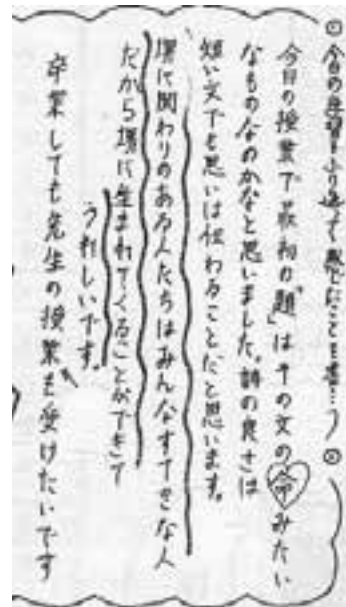 ◎今日の学習をふり返って感じたことを書こう◎
今日の授業で最初の「題」は千の文の命みたい
なものなのかなと思いました。詩の良さは
短い文でも思いは伝わることだと思います。
堺に関わりのある人たちはみんなすてきな人
だから堺に生まれてくることができて
うれしいです。
卒業しても先生の授業を受けたいです